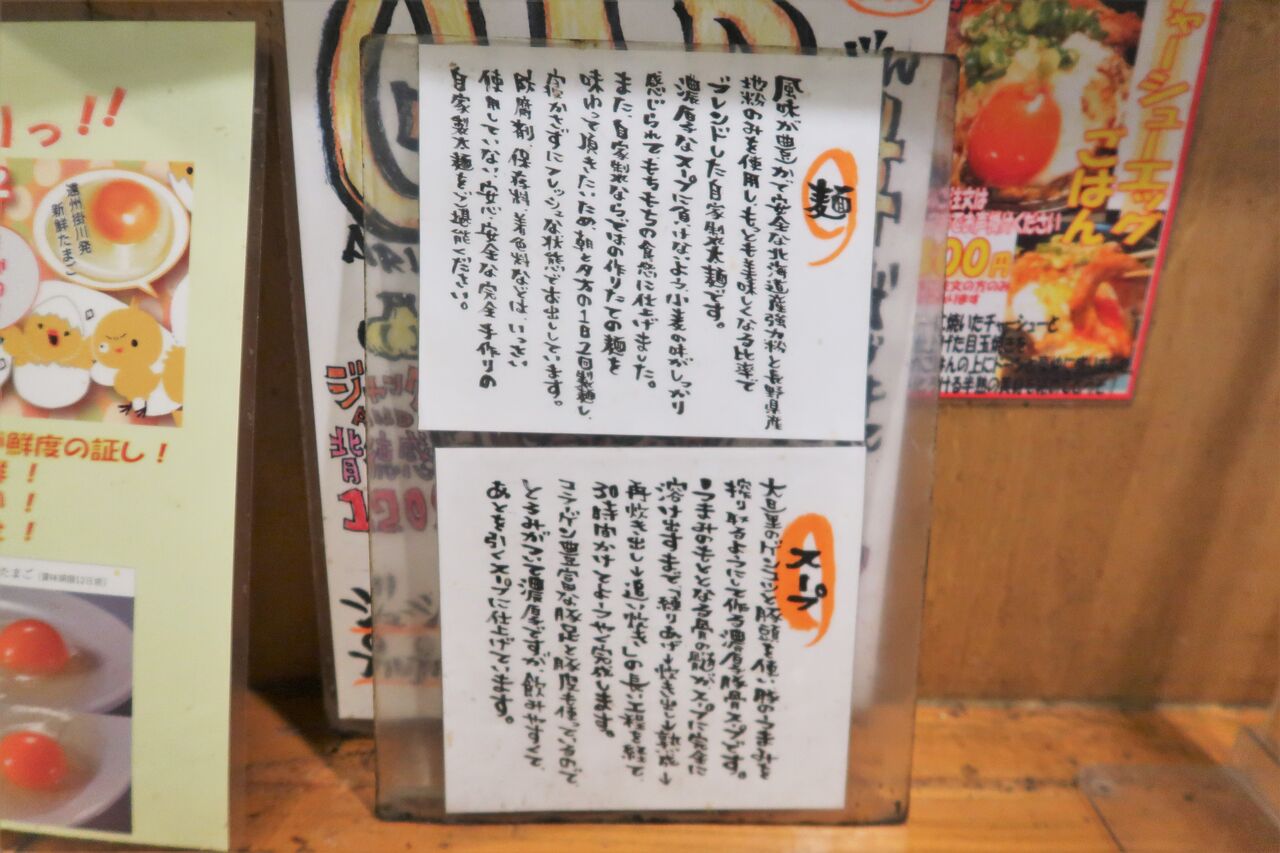 麺
風味が豊かで安全な北海道産強力粉と長野県産
地粉のみを使用しもっとも美味しくなる比率で
ブレンドした自家製太麺です。
濃厚なスープに負けないよう小麦の味がしっかり
感じられてもちもちの食感に仕上げました。
また自家製ならではの作りたての麺を
味わって頂きたいため、朝と夕方の1日2回製麺し、
寝かさずにフレッシュな状態でお出ししています。
防腐剤、保存料、着色料などは、いっさい
使用していない、安心・安全な完全手作りの
自家製太麺をご堪能ください。
スープ
大量のゲンコツと豚頭を使い豚のうまみを
搾り取るようにして作る濃厚豚骨スープです。
うまみのもととなる骨の髄がスープに完全に
溶け出すまで「練りあげ→炊き出し→熟成→
再炊き出し→追い炊き」の長い工程を経て
30時間かけてようやく完成します。
コラーゲン豊富な豚足と豚皮も使っているので
とろみがついて濃厚ですが、飲みやすくて
あとを引くスープに仕上げています。
っ!!
濃州掛川発
新鮮たまご
鮮度の証し!
たまご(賞味期限12日間)
チャーシューエッグ
ごはん
00円